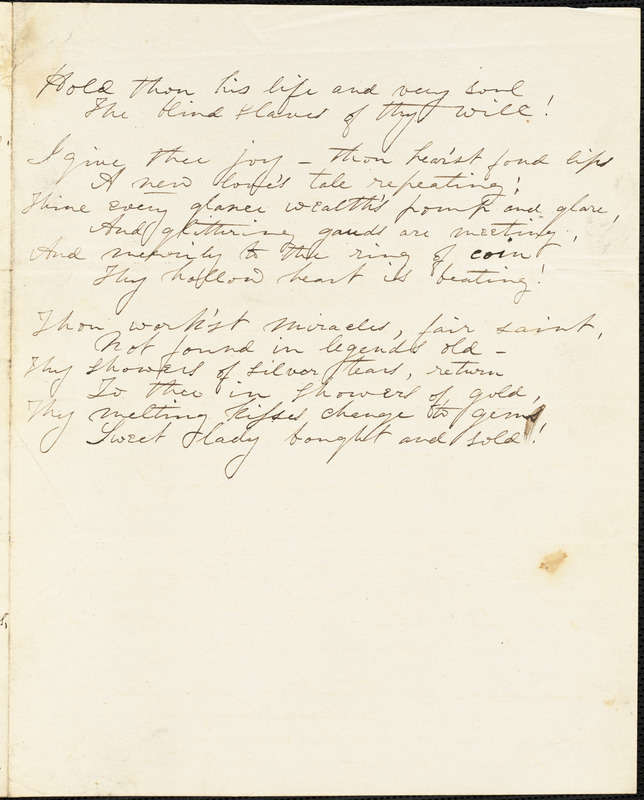 Hold thou his life and very soul
The blind slaves of thy will!
I give thee joy – thou hear'st fond lips
A new love's tale repeating;
Thine every glance wealth's pomp and glare,
And glittering gauds are meeting,
And merrily to the ring of coin
Thy hollow heart is beating!
Thou work'st miracles, fair saint,
Not found in legends old –
Thy showers of silver tears, return
To thee in showers of gold,
Thy melting kisses change to gems
Sweet Lady bought and sold!